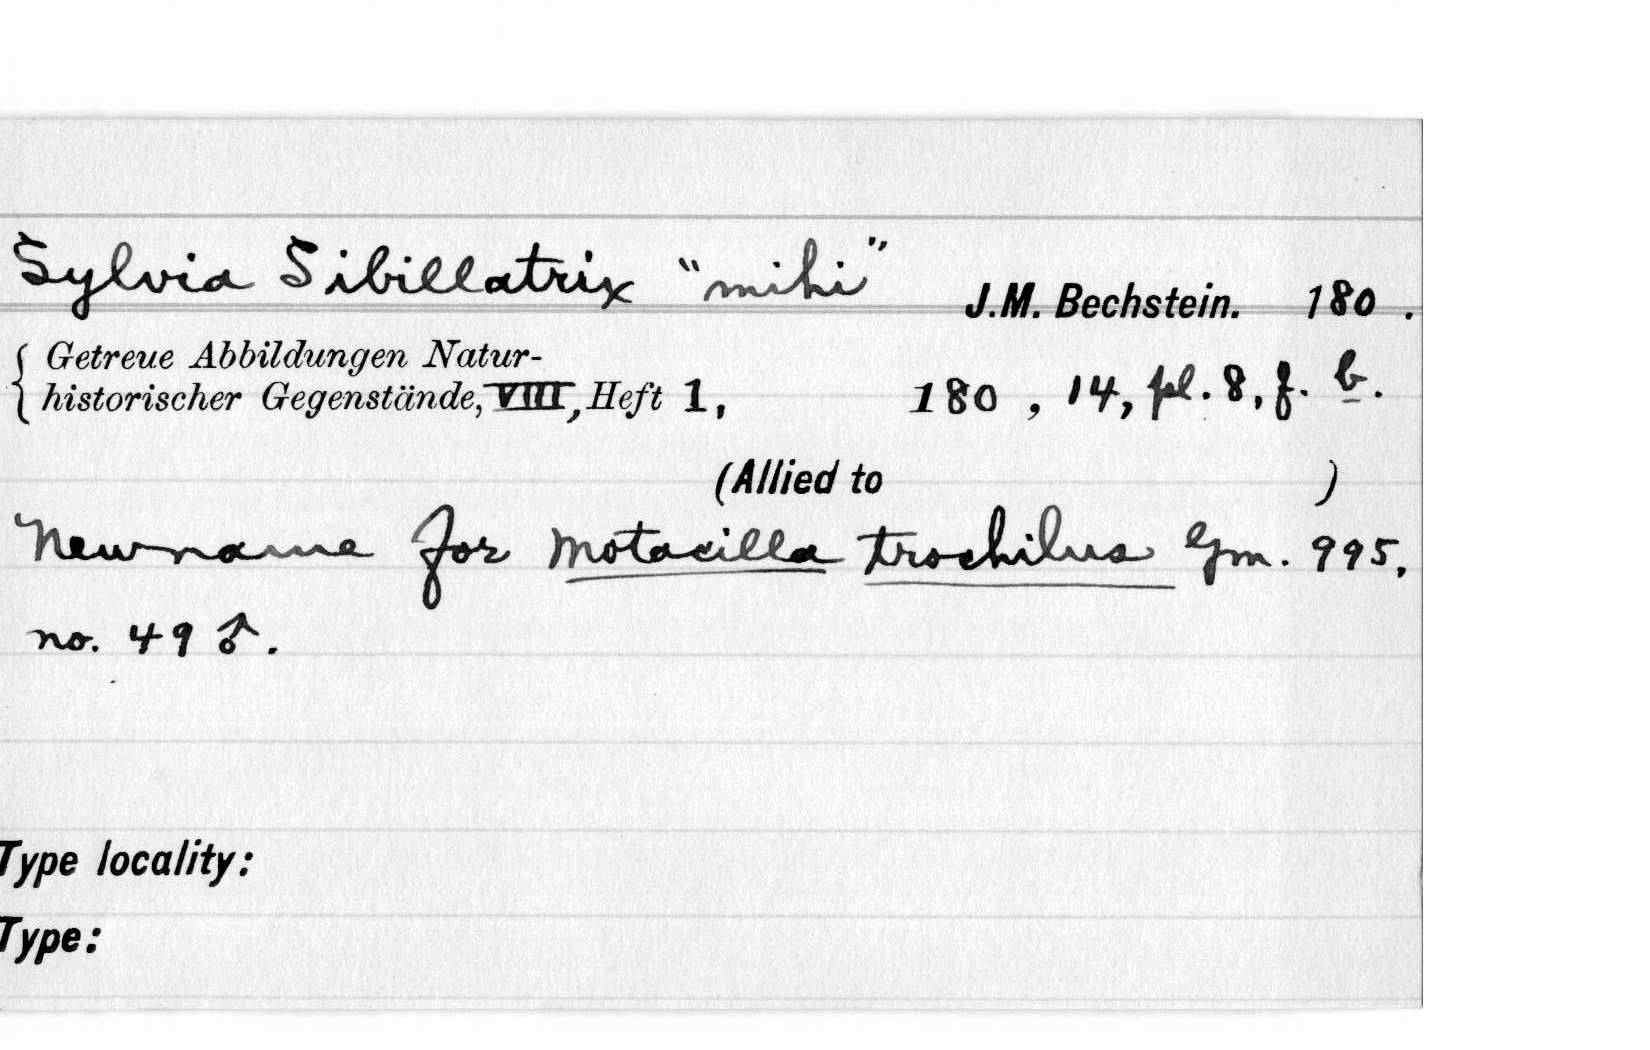 Sylvia Sibillatrix "mihi" J.M. Bechstein. 180 .
Getreue Abbildungen Natur-
historischer Gegenstände, VIII, Heft 1, 180 , 14, pl. 8, f. b.
(Allied to )
New name for Motacilla trochilus Gm. 995,
no. 49 ♂.
Type locality:
Type: